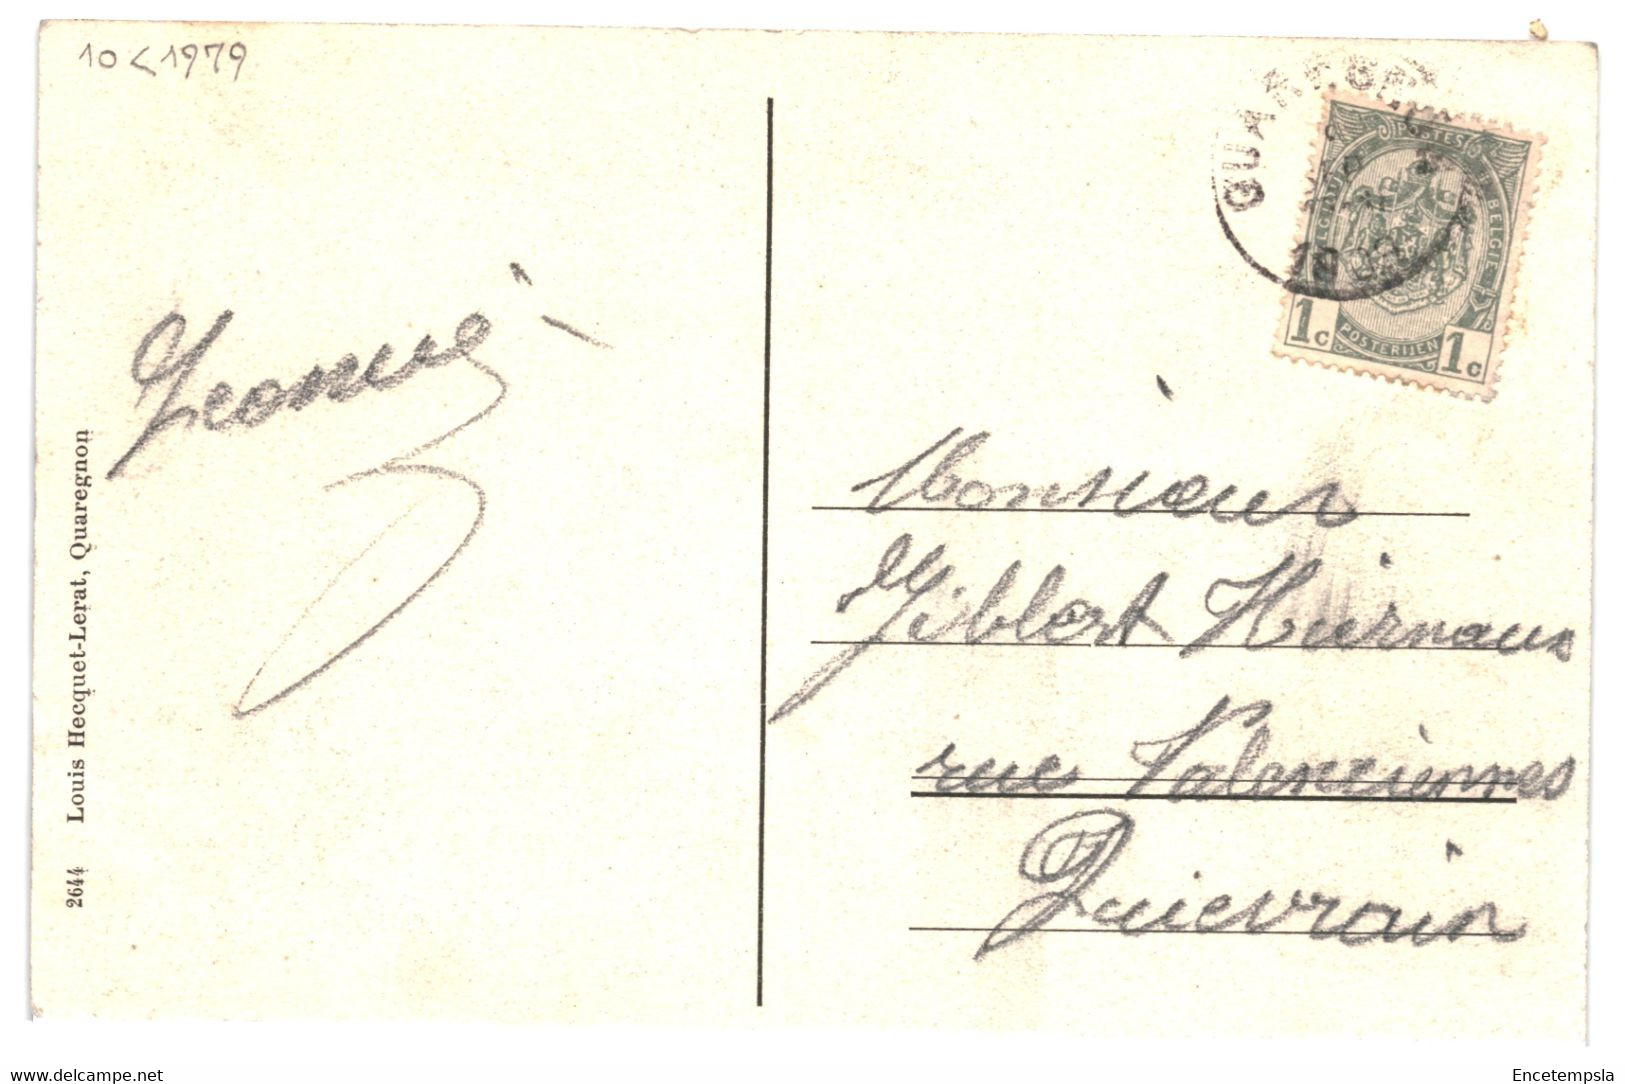 10<1979
QUAREGNON
POSTES
BELGIQUE
BELGIE
POSTERIJEN
1c 1c
Monsieur
Gilbert Hiernaux
rue Valenciennes
Quievrain
2644 Louis Hecquet-Lerat, Quaregnon
www.delcampe.net
Encetempsla